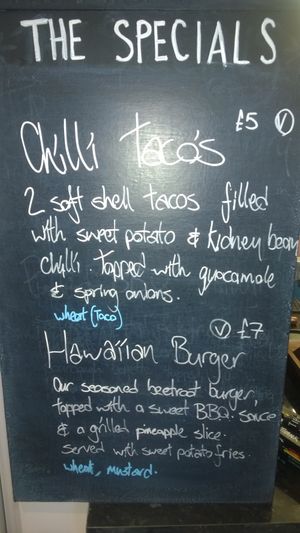 THE SPECIALS
£5 V
Chilli Taco's
2 soft shell tacos filled
with sweet potato & kidney bean
chilli. Topped with guacamole
& spring onions.
wheat (Taco)
V £7
Hawaiian Burger
Our seasoned beetroot burger,
topped with a sweet BBQ sauce
& a grilled pineapple slice.
served with sweet potato fries.
wheat, mustard.